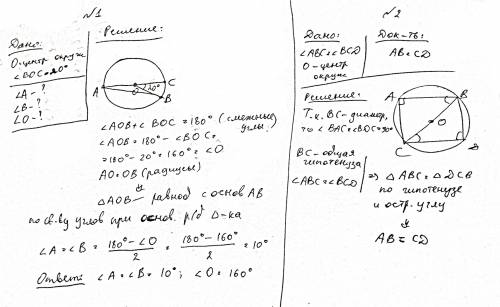 №1
Дано:
О-центр окруж
∠BOC=20°
∠A-?
∠B-?
∠O-?
Решение:
A
O
20°
C
B
∠AOB+∠BOC=180° (смежные углы)
∠AOB=180°-∠BOC=
=180°-20°=160°=∠O
AO=OB (радиусы)
⇓
△AOB- равноб с основ AB
по св.ву углов при основ. р/б △-ка
∠A=∠B= 180°-∠O / 2 = 180°-160° / 2 =10°
Ответ: ∠A=∠B=10°; ∠O=160°
№2
Дано:
∠ABC=∠BCD
О-центр
окруж
Док-ть:
AB=CD
Решение:
Т.к. BC-диаметр,
то ∠BAC=∠BDC=90°
A
B
O
C
D
BC-общая
гипотенуза
∠ABC=∠BCD
⇒ △ABC=△DCB
по гипотенузе
и остр. углу
⇓
AB=CD